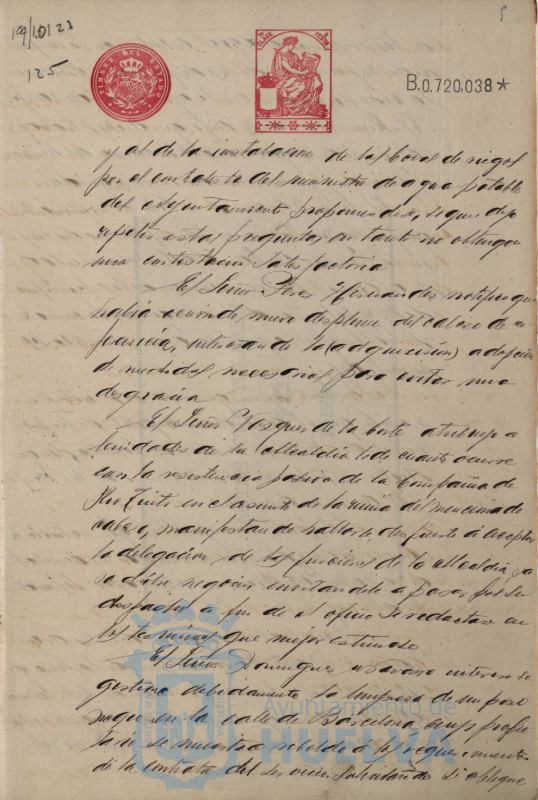 199/10123
125
5
TIMBRE DEL ESTADO
B.0.720,038*
y al de la instalacion de las bocas de riego
por el contratista del suministro de agua potable
del Ayuntamiento proponiendose, segun dijo
repetir estas preguntas en tanto no obtenga
una contestacion satisfactoria
El Señor Perez Hernandez notifico que
habia ocurrido nuevo desplome del cabezo de
interesando la (adquisicion) adopcion
de medidas necesarias para evitar una
desgracia
El Señor Vazquez de la Corte atribuyo a
lenidades de la Alcaldia todo cuanto ocurre
con la resistencia pasiva de la Compañia de
Rio Tinto en el asunto de la ruina del mencionado
cabezo, manifestando hallarse dispuesto á aceptar
la delegacion de las funciones de la Alcaldia para
dicho negocio, invitandole a pasar por su
despacho a fin de que el oficio se redactase en
los terminos que mejor estimase
El Señor Dominguez intereso se
gestione debidamente la limpieza de un pozo
negro en la calle de Barcelona cuyo propie-
tario se muestra rebelde a los requerimientos
de la contrata del servicio, solicitando se obligue
Ayuntamiento de
HUELVA